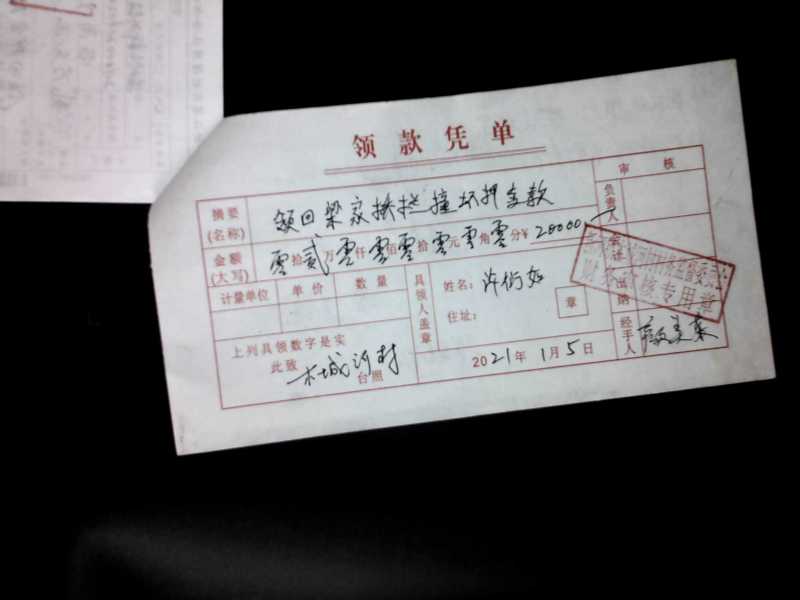 领款凭单
摘要(名称) 领回梁家扶拦撞坏押金款
审核
负责人
金额(大写) 零拾贰万零仟零佰零拾零元零角零分¥20000
计量单位 单价 数量
具领人盖章
姓名:
住址:
章
出纳
财务审核专用章
上列具领数字是实
此致
木城河村 台照
2021年1月5日
经手人